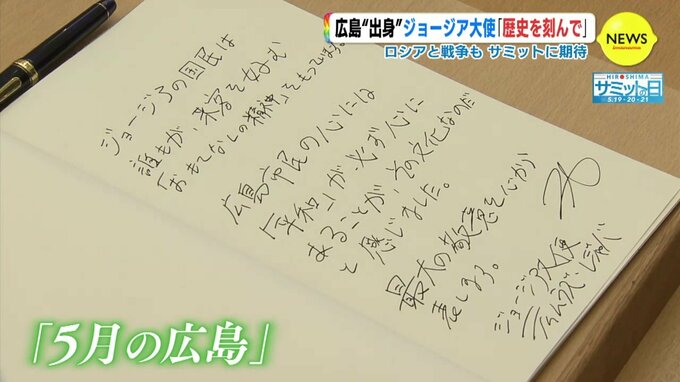 広島“出身”ジョージア大使「歴史を刻んで」
ロシアと戦争も サミットに期待
NEWS
HIROSHIMA
サミットの日
5.19・20・21
ジョージアの国民は
誰もが、来客を好む
「おもてなしの精神」をもっています。
広島市民の心には
「平和」が、必ず心に
あることが、その文化なのだ
と感じました。
最大の敬意を心から
表しまる。
ジョージア大使
「5月の広島」